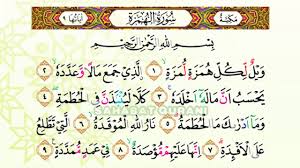 مكية سورة الهمزة آياتها ٩
بِسْمِ اللّٰهِ الرَّحْمٰنِ الرَّحِيْمِ
وَيْلٌ لِّكُلِّ هُمَزَةٍ لُّمَزَةٍ ١ الَّذِيْ جَمَعَ مَالًا وَّعَدَّدَهٗ ٢
يَحْسَبُ اَنَّ مَالَهٗٓ اَخْلَدَهٗ ٣ كَلَّا لَيُنْۢبَذَنَّ فِى الْحُطَمَةِ ٤
وَمَآ اَدْرٰىكَ مَا الْحُطَمَةُ ٥ نَارُ اللّٰهِ الْمُوْقَدَةُ ٦ الَّتِيْ تَطَّلِعُ
عَلَى الْاَفْـِٕدَةِ ٧ اِنَّهَا عَلَيْهِمْ مُّؤْصَدَةٌ ٨ فِيْ عَمَدٍ مُّمَدَّدَةٍ ٩